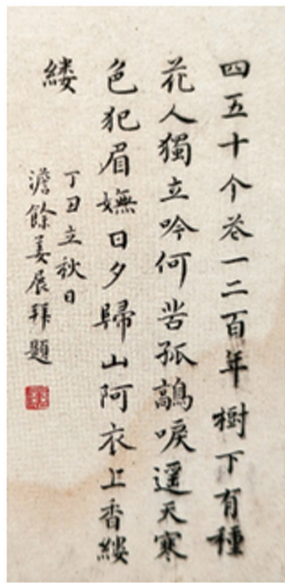 四五十个峇一二百年樹下有種
花人獨立吟何苦孤鷊唳遥天寒
色犯眉嫵日夕歸山阿衣上香縷
縷
丁丑立秋日
澹餘姜展拜題